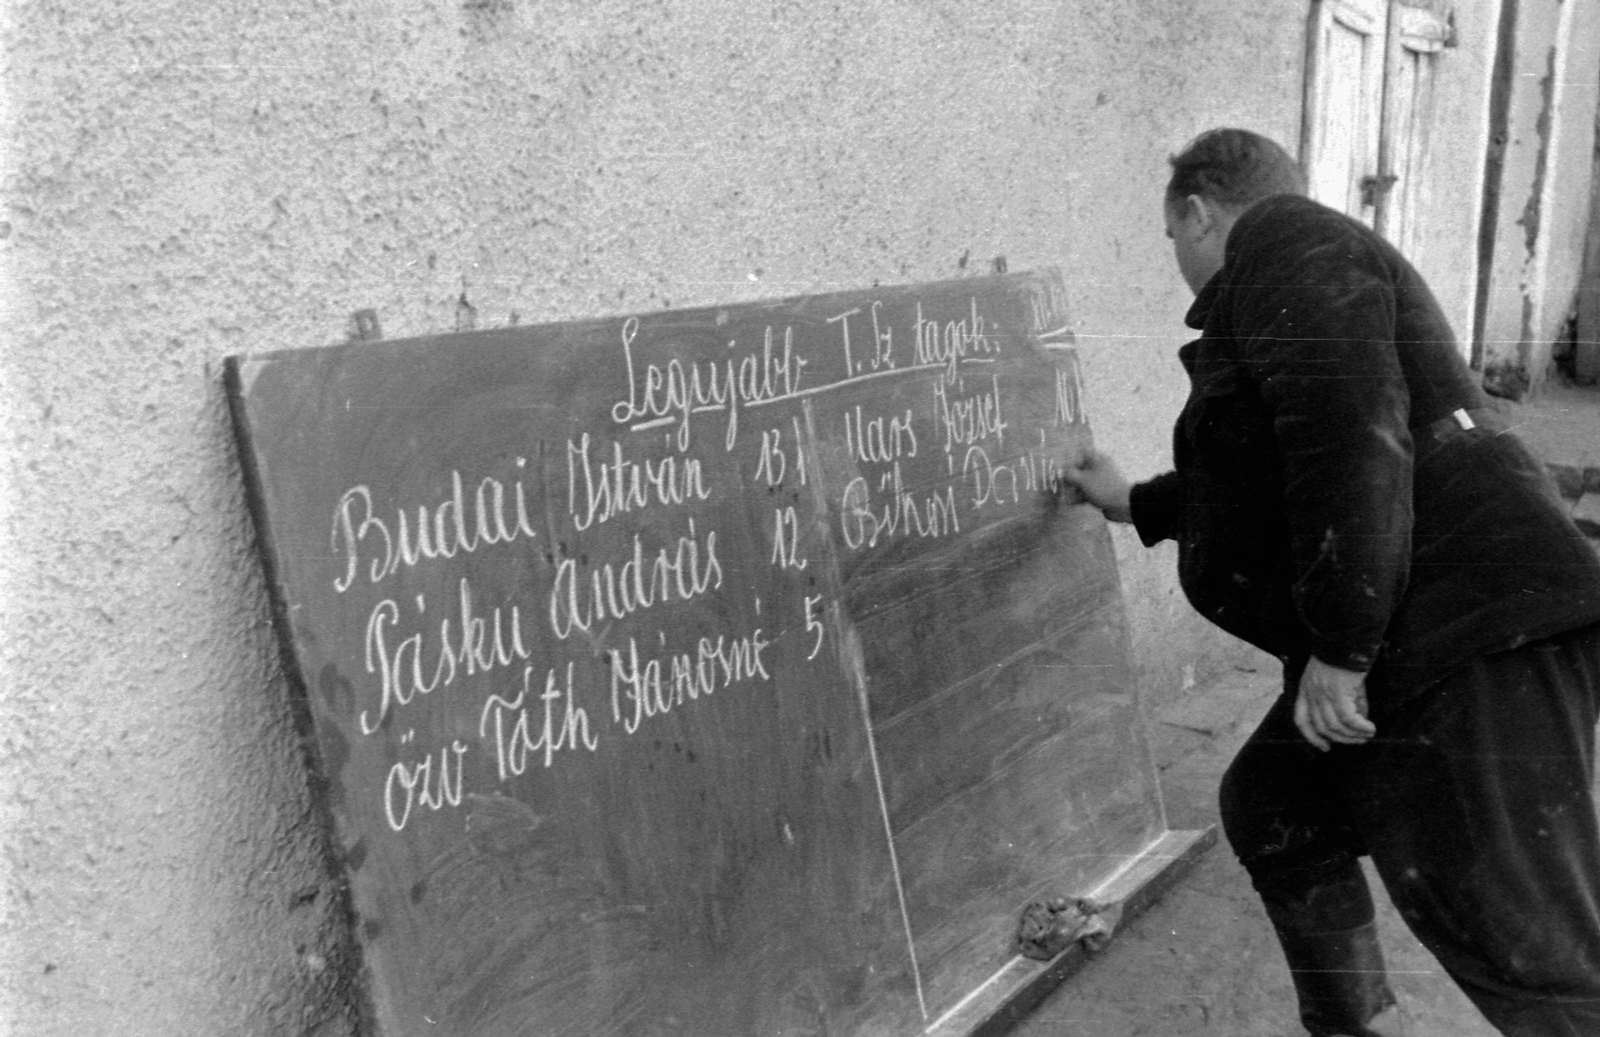 Legujabb T. Sz tagok:
Budai István 13
Pásku András 12
özv Tóth Jánosné 5
József 10
Bihari